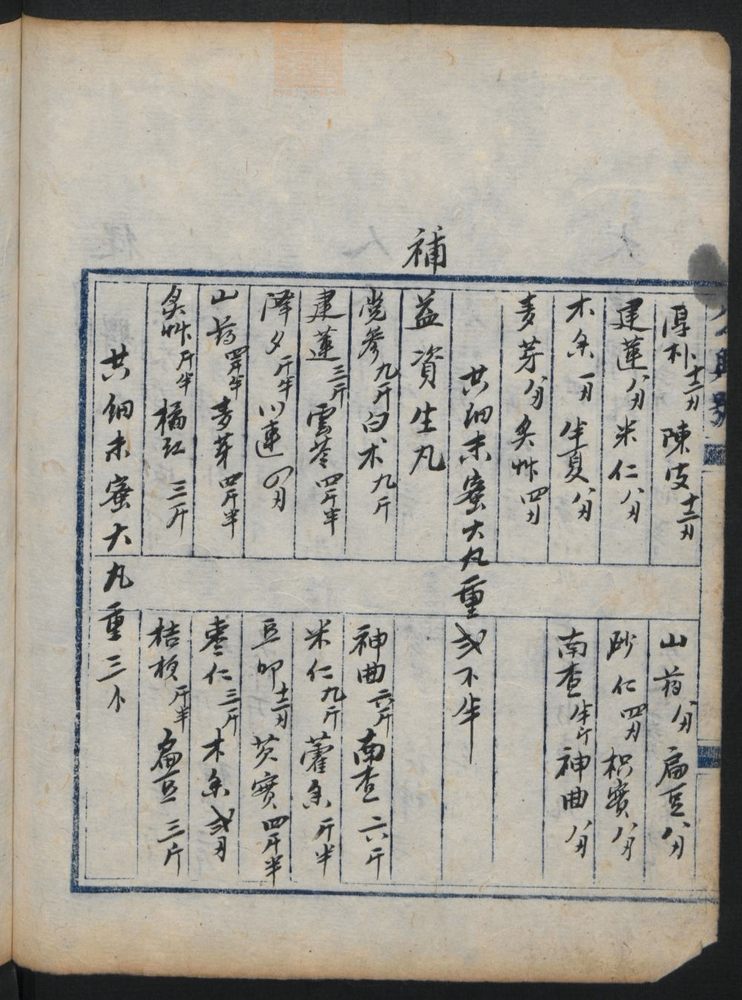 補
厚朴十二刃 陳皮十二刃 山葯八刃 扁豆八刃
建蓮八刃 米仁八刃 砂仁四刃 枳實八刃
木香一刃 半夏八刃 南查半斤 神曲八刃
麦芽八刃 炙艸四刃
共細末蜜大丸重弍不半
益資生丸
党參九斤 白朮九斤 神曲六斤 南查六斤
建蓮三斤 雲苓四斤半 米仁九斤 藿香斤半
澤夕斤半 川連四刃 豆叩十二刃 芡實四斤半
山葯四斤半 麦芽四斤半 枣仁三斤 木香弍刃
炙艸斤半 橘红三斤 桔梗斤半 扁豆三斤
共細末蜜大丸重三卜